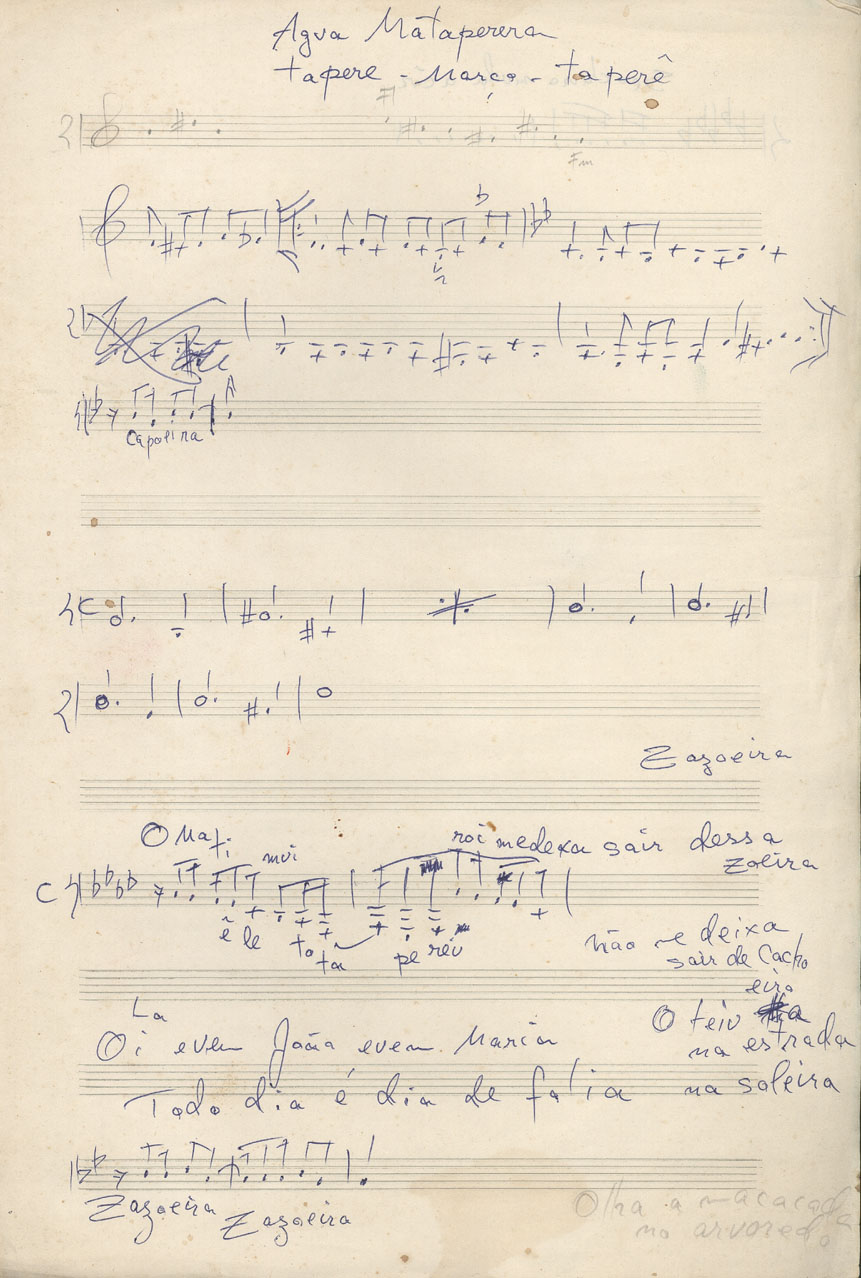 Agua Mãtaperera
tapere - março - taperê
F
Fm
Capoeira
Zazoeira
O Mati
mui
roi me dexa sair dessa
zoeira
ê le to tâ pe reiu
não me deixa
sair de Cacho
eira
La
Oi evem João evem Maria
O teiu
na estrada
Todo dia é dia de folia
na soleira
Zazoeira Zazoeira
Olha a macacada
no arvoredo